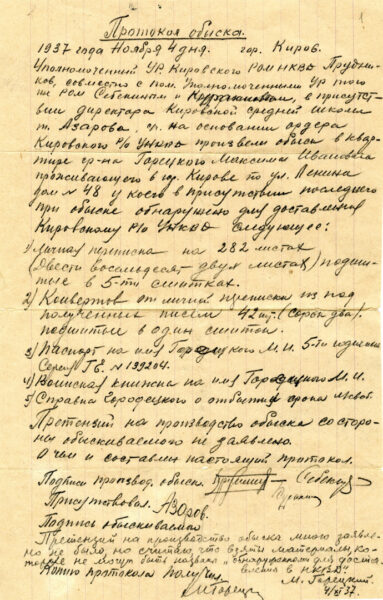 Протокол обыска.
1937 года Ноября 4 дня. гор. Киров.
Уполномоченный УР. Кировского РОМ НКВД Прудни-
ков, совместно с пом. Уполномоченным Ур того
же РОМ и в присутс-
твии директора Кировской средней школы
т. Азарова, на основании ордера
Кировского Р/О УНКВД произвели обыск в квар-
тире гр-на Горецкого Максима Ивановича
проживающего в гор. Кирове по ул. Ленина
дом № 48 у коего в присутствии последнего
при обыске обнаружено для доставления
Кировскому Р/О УНКВД следующее:
1) Личная переписка на 282 листах
(Двести восемьдесят двух листах) подши-
тые в 5-ти сшитках.
2) Конвертов от личной переписки из под
полученных писем 42 шт. (сорок два).
подшитые в один сшиток.
3) Паспорт на имя Горецкого М. И. 5-ти годичный
Серия Г.Б. № 139204.
4) Воинская книжка на имя Горецкого М. И.
5) Справка Городецкого о отбытии срока
Претензий на производство обыска со сторо-
ны обыскиваемого не заявлено.
О чем и составлен настоящий протокол.
Подписи производ. обыска.
Присутствовал. Азаров.
Подпись обыскиваемого
Претензий на производство обыска мною заявле-
но не было, но считаю, что взятые материалы, ко-
торые не могут быть названы "обнаружен. для доста-
вления в НКВД".
Копию протокола получил М. Горецкий.
4/XI 37.